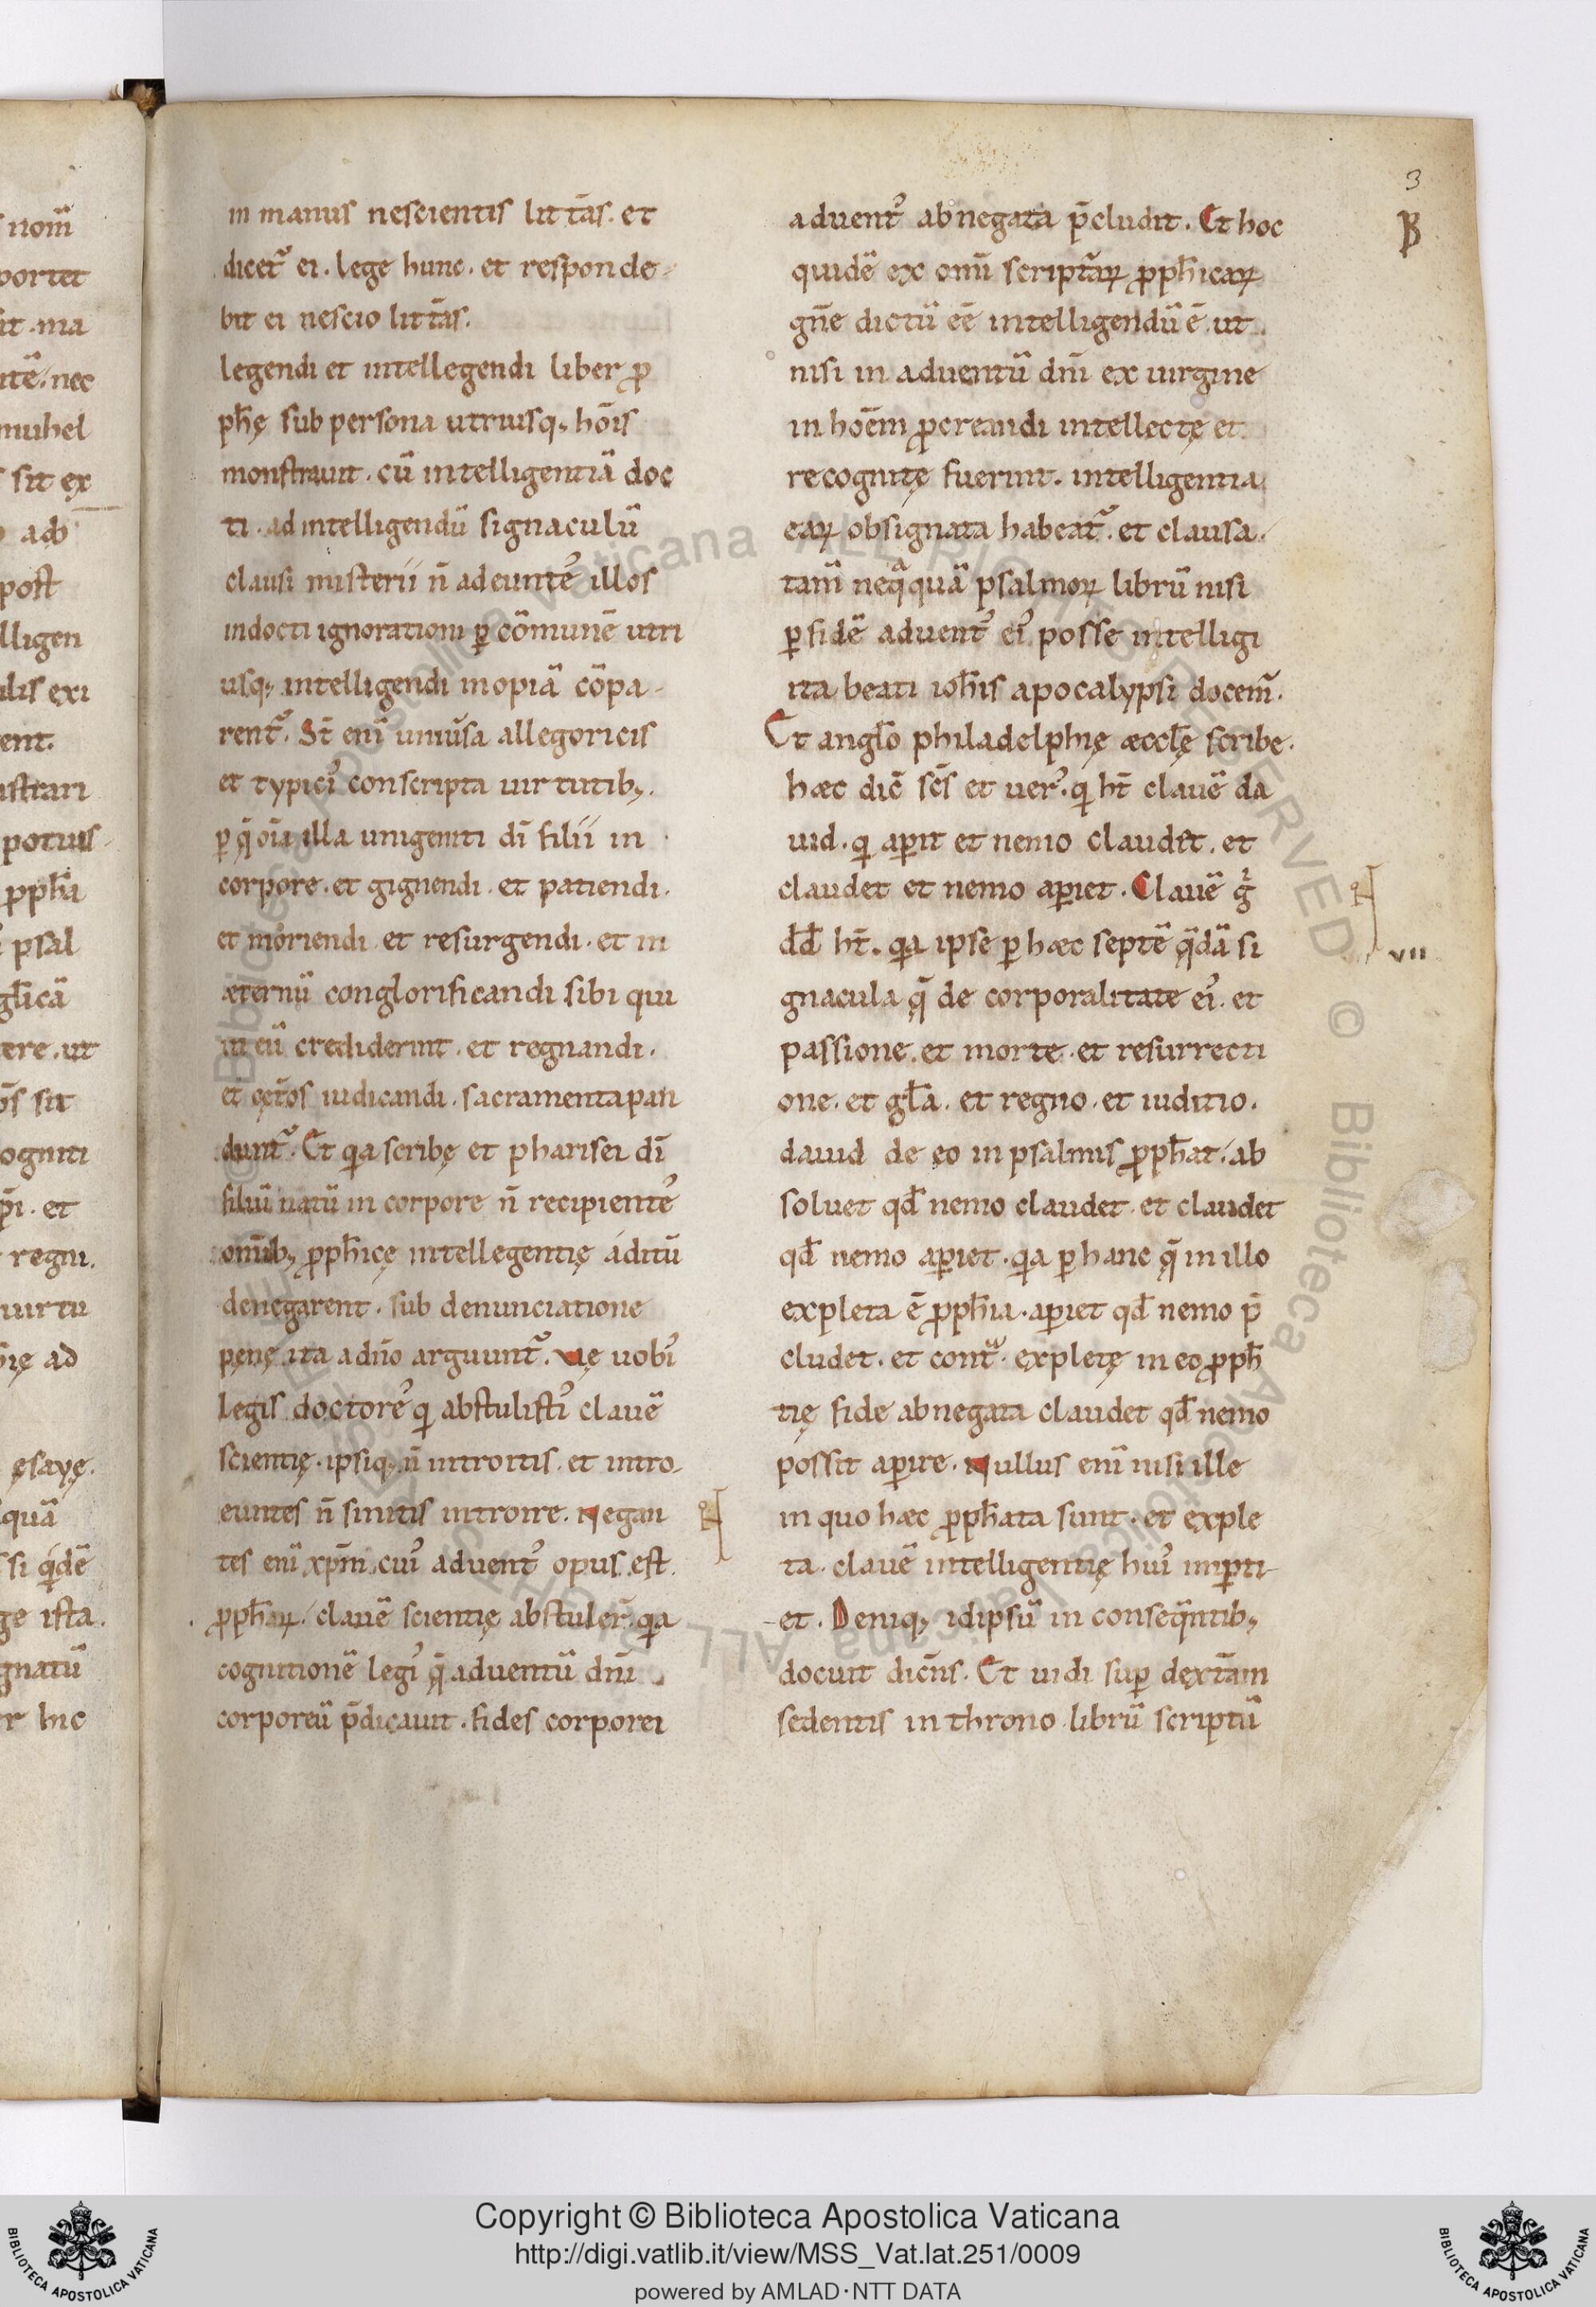 in manus nescientis litt̄as. et
dicet᷒ ei. lege hunc. et responde-
bit ei nescio litt̄as.
legendi et intellegendi liber ꝓ
ph̄ę sub persona utriusq; hōis
monstrauit. cū intelligentiā doc
ti. ad intelligendū signaculū
clausi misterii n̄ adeunte᷒ illos
indocti ignorationi ꝑ cōmunē utri
usq; intelligendi inopiā cōpa-
rent᷒. St̄ eni᷒ uniūsa allegoricis
et typici᷒ conscripta uirtutib;.
ꝑ q̄ oīa illa unigeniti dī filii in
corpore. et gignendi. et patiendi.
et moriendi. et resurgendi. et in
æternū conglorificandi sibi qui
in eū crediderint. et regnandi.
et cęt̄os iudicandi. sacramenta pan
dunt᷒. Et qa scribę et pharisei dī
filiū natū in corpore n̄ recipiente᷒
omīb; ꝓph̄icę intellegentię áditū
denegarent. sub denunciatione
pęnę ita a dn̄o arguunt᷒. uę uobi᷒
legis doctore᷒ q abstulisti᷒ clauē
scientię. ipsiq; n̄ introitis. et intro-
euntes n̄ sinitis introire. Negan
tes eni᷒ xp̄m. cui᷒ aduent᷒ opus est
ꝓph̄aꝝ. clauē scientię abstuler̄. qa
cognitionē legi᷒ q̄ aduentū dn̄i
corporeū p̄dicauit. fides corporei
3
B
aduent᷒ abnegata p̄cludit. Et hoc
quidē ex omī script̄aꝝ ꝓph̄icaꝝ
gn̄e dictū eē intelligendū ē. ut
nisi in aduentū dn̄i ex uirgine
in hoēm ꝓcreandi intellectę et
recognitę fuerint. intelligentia
eaꝝ obsignata habeat᷒. et clausa.
tam̄ neqᷓquā psalmoꝝ librū nisi
ꝑ fidē aduent᷒ ei᷒ posse intelligi
ita beati ioh̄is apocalypsi docem᷒.
Et angl̄o philadelphię æccl̄ę scribe.
hæc dic̄ sc̄s et uer᷒. q ht̄ clauē da
uid. q aꝑit et nemo claudet. et
claudet et nemo aꝑiet. Clauē gͦ
dd̄ ht̄. qa ipse ꝑ hæc septē qᷓdā si
gnacula q̄ de corporalitate ei᷒. et
passione. et morte. et resurrecti
one. et gl̄a. et regno. et iuditio.
dauid de eo in psalmis ꝓph̄at. ab
soluet qd̄ nemo claudet. et claudet
qd̄ nemo aꝑiet. qa ꝑ hanc q̄ in illo
expleta ē ꝓph̄ia. aꝑiet qd̄ nemo p̄
cludet. et contᷓ. expletę in eo ꝓph̄
tię fide abnegata claudet qd̄ nemo
possit aꝑire. Nullus eni᷒ nisi ille
in quo hæc ꝓph̄ata sunt. et exple
ta. clauē intelligentię hui᷒ imꝑti-
et. Deniq; idipsū in conseqᷓntib;
docuit dicn̄s. Et uidi suꝑ dext̄am
sedentis in throno librū scriptū
VII
Copyright © Biblioteca Apostolica Vaticana
http://digi.vatlib.it/view/MSS_Vat.lat.251/0009
powered by AMLAD·NTT DATA
BIBLIOTECA APOSTOLICA VATICANA
BIBLIOTECA APOSTOLICA VATICANA